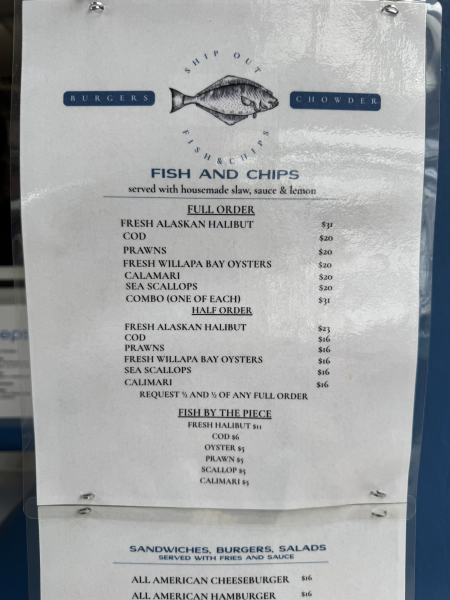 SHIP OUT
BURGERS
CHOWDER
FISH & CHIPS
FISH AND CHIPS
served with housemade slaw, sauce & lemon
FULL ORDER
FRESH ALASKAN HALIBUT $31
COD $20
PRAWNS $20
FRESH WILLAPA BAY OYSTERS $20
CALAMARI $20
SEA SCALLOPS $20
COMBO (ONE OF EACH) $31
HALF ORDER
FRESH ALASKAN HALIBUT $23
COD $16
PRAWNS $16
FRESH WILLAPA BAY OYSTERS $16
SEA SCALLOPS $16
CALIMARI $16
REQUEST ½ AND ½ OF ANY FULL ORDER
FISH BY THE PIECE
FRESH HALIBUT $11
COD $6
OYSTER $5
PRAWN $5
SCALLOP $5
CALIMARI $5
SANDWICHES, BURGERS, SALADS
SERVED WITH FRIES AND SAUCE
ALL AMERICAN CHEESEBURGER $16
ALL AMERICAN HAMBURGER $16